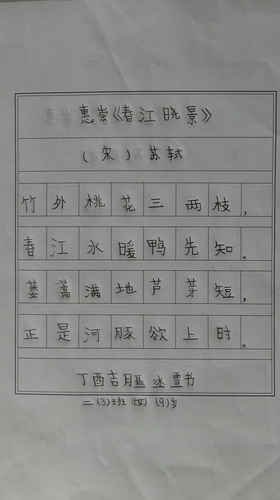 惠崇《春江晓景》
(宋) 苏轼
竹外桃花三两枝,
春江水暖鸭先知。
蒌蒿满地芦芽短,
正是河豚欲上时。
丁酉吉月 书
二(3)班 (女) (9)岁